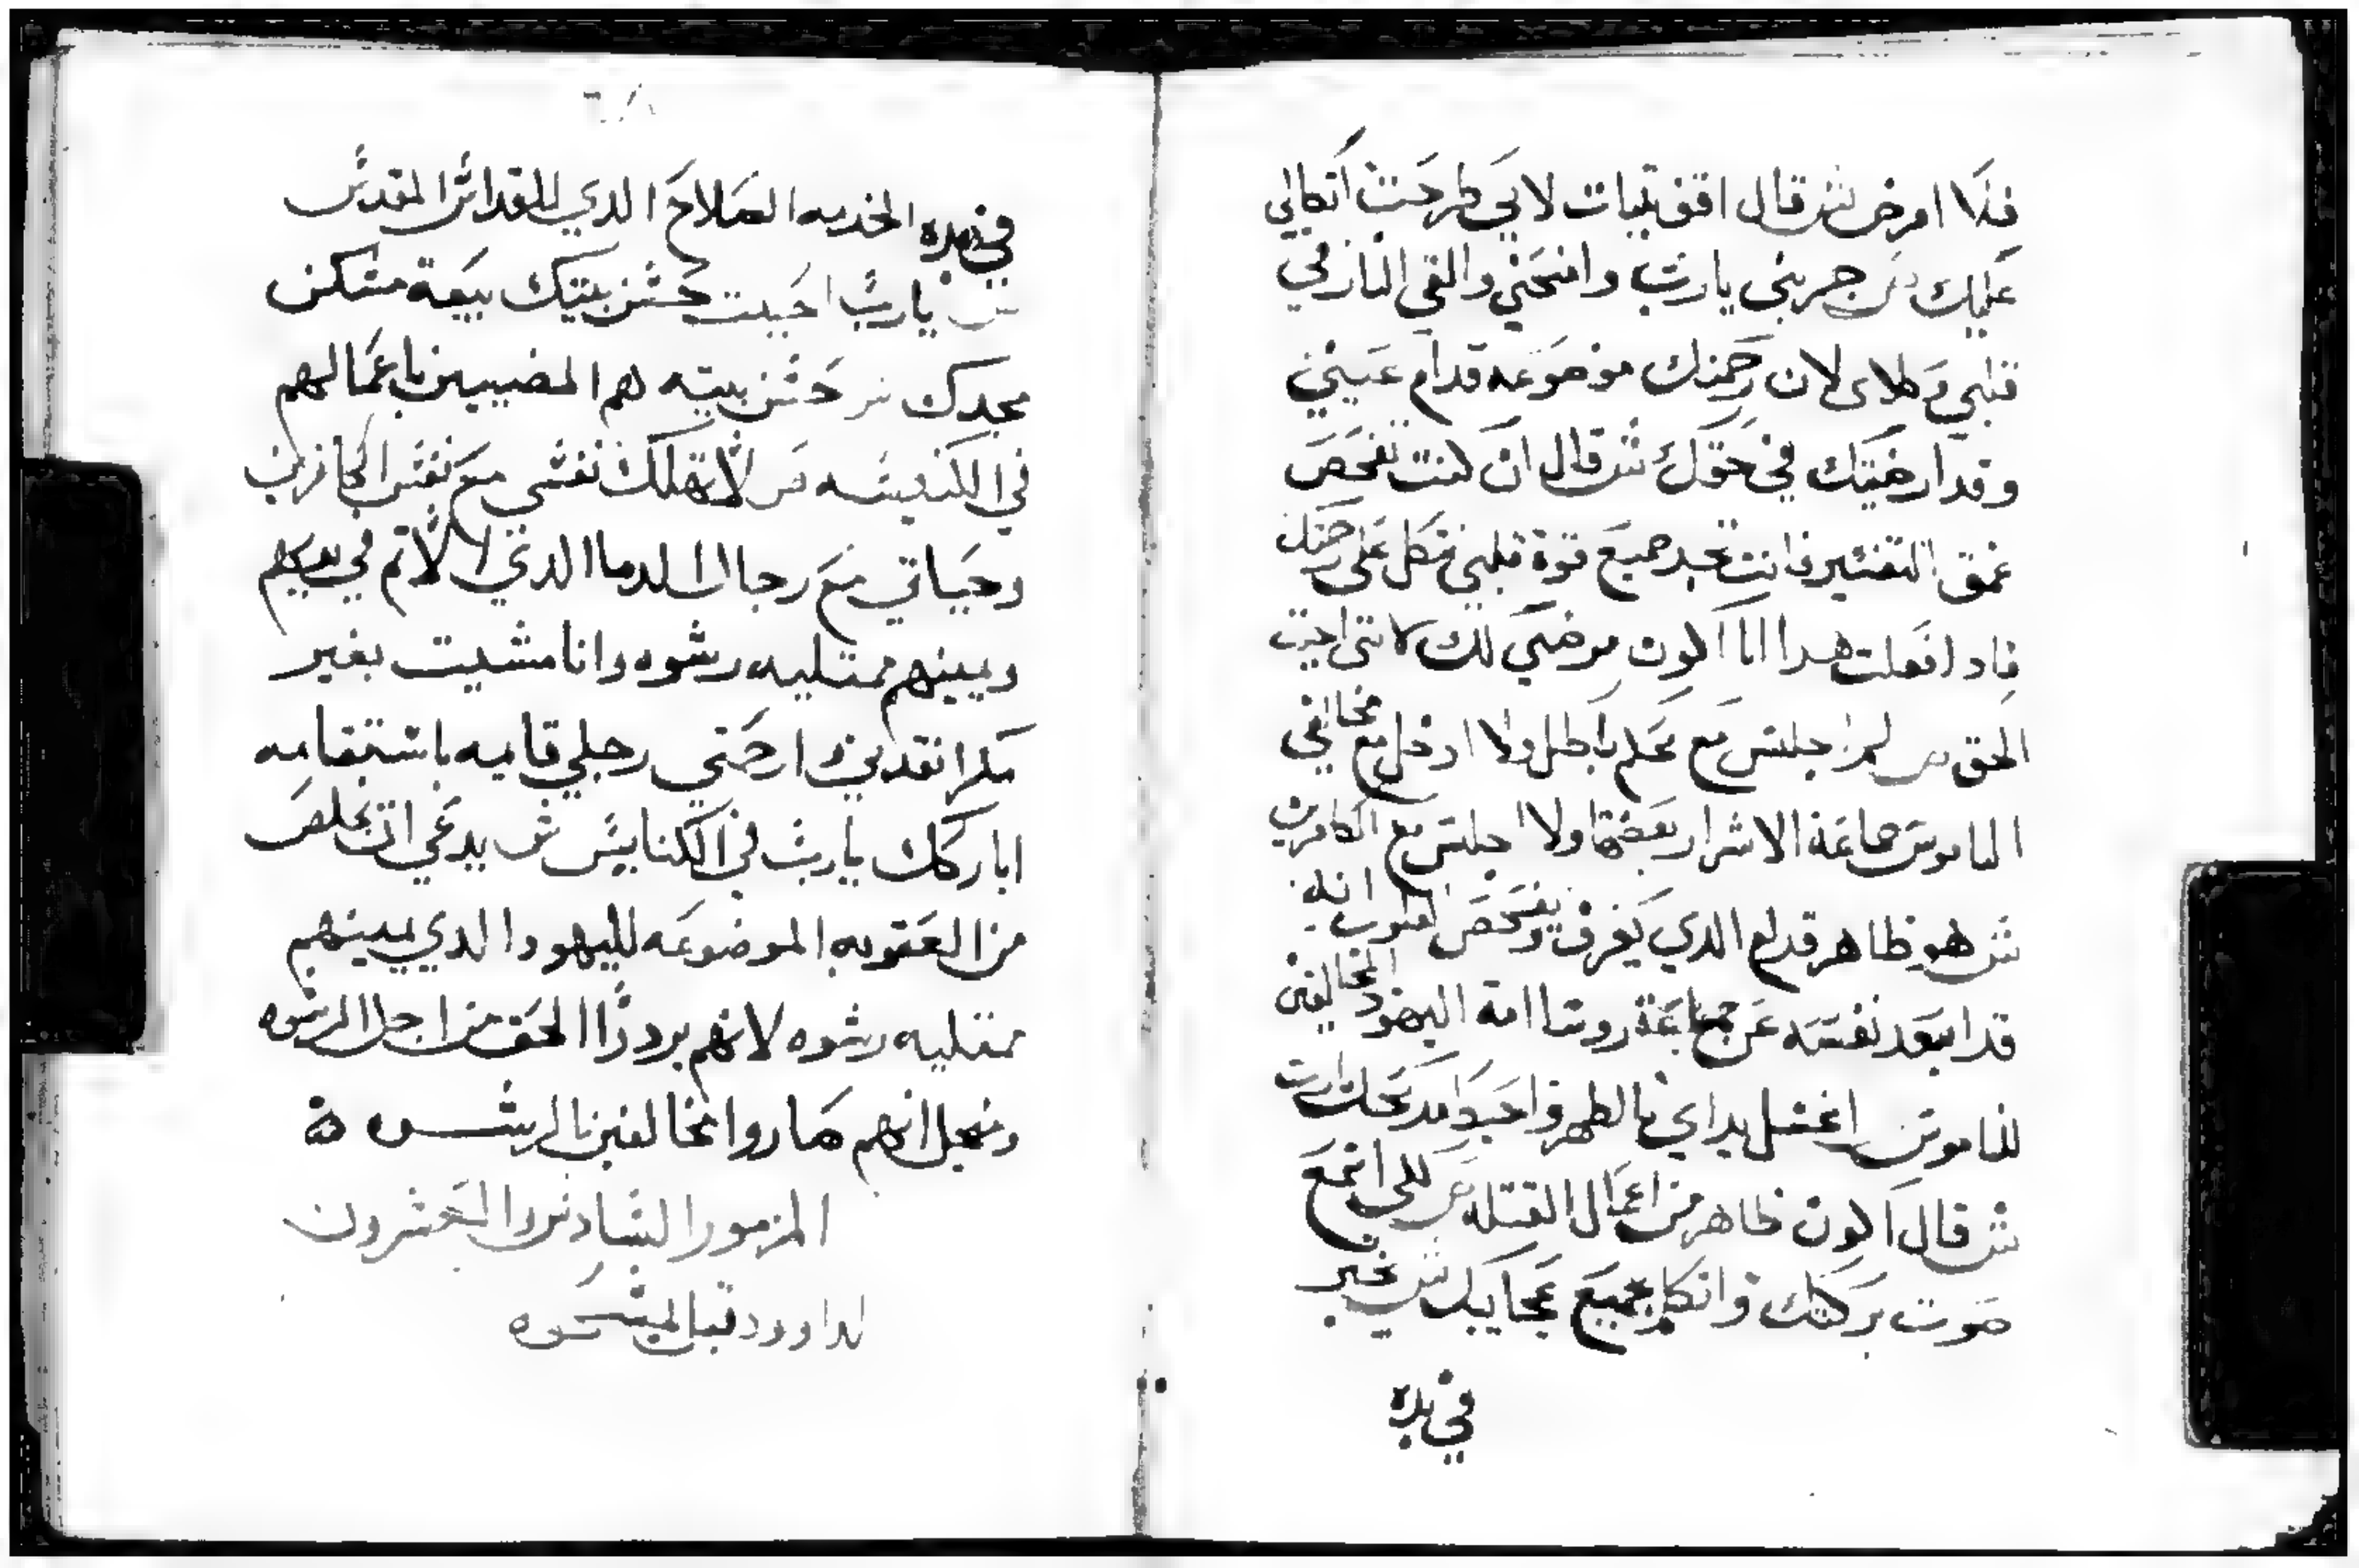 فلا امرض شر قال اقف بتبات لاني طرحت اتكالي
عليك مز جربني يارب وامتحني والقي النار في
قلبي وكلاى لان رحمتك موضوعه قدام عيني
وقد ارضيتك في حقك شر قال ان كنت تفحص
عمق التفتير فانت تجد جميع قوة قلبي متكل على رحمتك
فاد افعلت هدا انا اكون مرضي لك لانني احببت
الحق مز لم اجلس مع محلم باطل ولا ادخل مع مخالفي
الناموس جماعة الاشرار بغضتها ولا اجلس مع الكافرين
شر هو ظاهر قدام الدي يعرف ويفحص القلوب انه
قد ابعد نفسه عن جماعة روسا امة اليهود المخالفين
للناموس اغسل يداي بالطهر واحيط بمدبحك يارب
شر قال اكون ظاهر من اعمال القتله مز لكي اسمع
صوت بركتك وانكلم بجميع عجايبك شر نخبر
في بده
٦٨
في هده الخدمه الصلاح الدي للقداس المقدس
مز يارب احببت حسن بيتك بيعة مسكن
مجدك شر حسن بيته هم المضيين باعمالهم
في الكنيسه مز لا تهلك نفسي مع نفس الكافرين
وحياتي مع رجال الدما الدي الاتم في يديهم
ويمينهم ممتليه رشوه وانا مشيت بغير
مكر انقدني ارحمني رجلي قايمه باستقامه
اباركك يارب في الكنايس شر يدعي ان يخلص
من العقوبه الموضوعه لليهود الدي يمينهم
ممتليه رشوه لانهم بردوا الحق من اجل الرشوه
ومنجل انهم صاروا مخالفين بالرشوة
المزمور السادس والعشرون
لداوود قبل المسحه